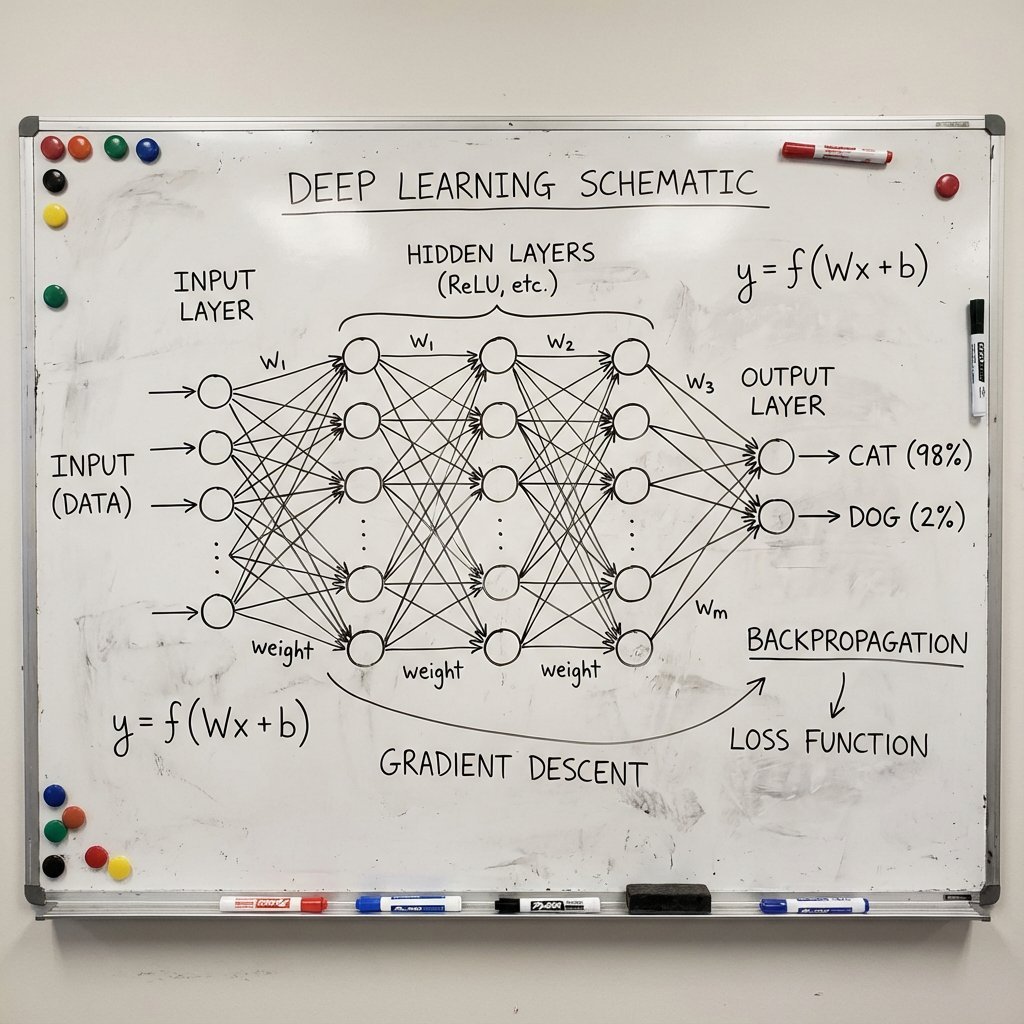 DEEP LEARNING SCHEMATIC
HIDDEN LAYERS
(ReLU, etc.)
y = f(Wx + b)
INPUT
LAYER
W₁
W₁
W₂
W₃
OUTPUT
LAYER
INPUT
(DATA)
CAT (98%)
DOG (2%)
Wm
weight
weight
weight
BACKPROPAGATION
LOSS FUNCTION
y = f(Wx + b)
GRADIENT DESCENT